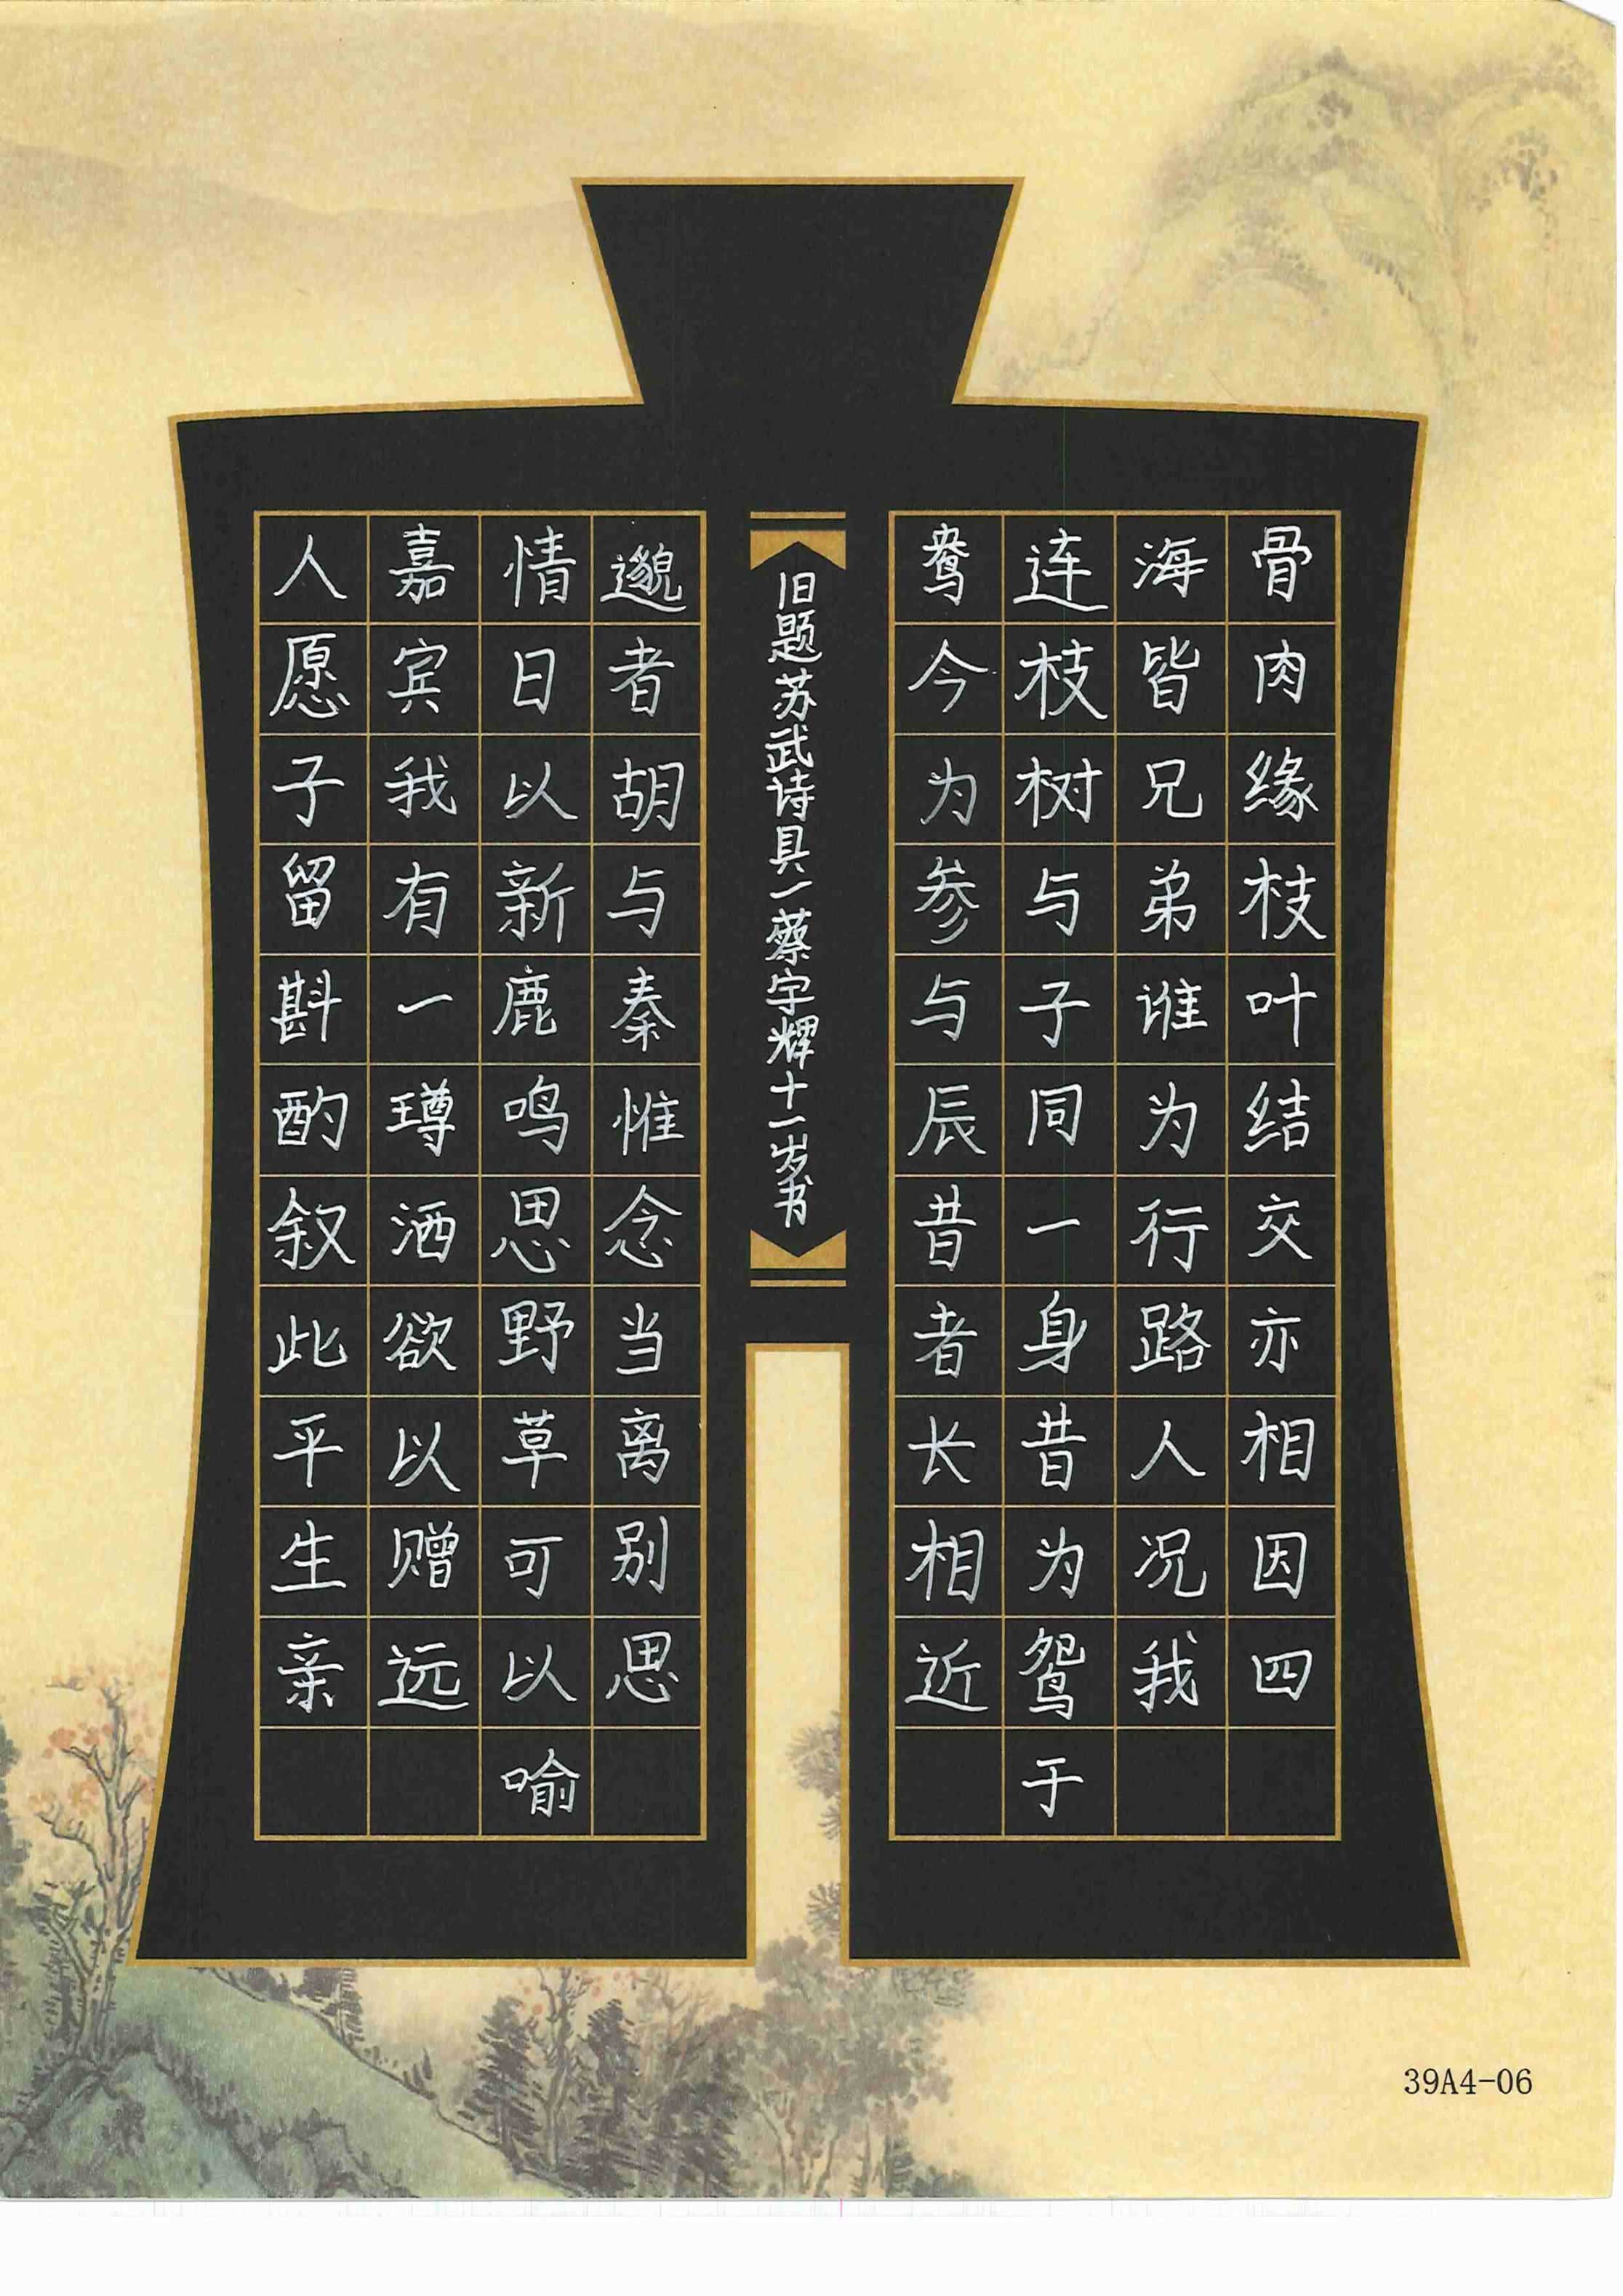 骨肉缘枝叶结交亦相因四
海皆兄弟谁为行路人况我
连枝树与子同一身昔为鸳于
鸯今为参与辰昔者长相近
旧题苏武诗具一蔡宇辉十一岁书
邈者胡与秦惟念当离别思
情日以新鹿鸣思野草可以喻
嘉宾我有一罇洒欲以赠远
人愿子留斟酌叙此平生亲
39A4-06